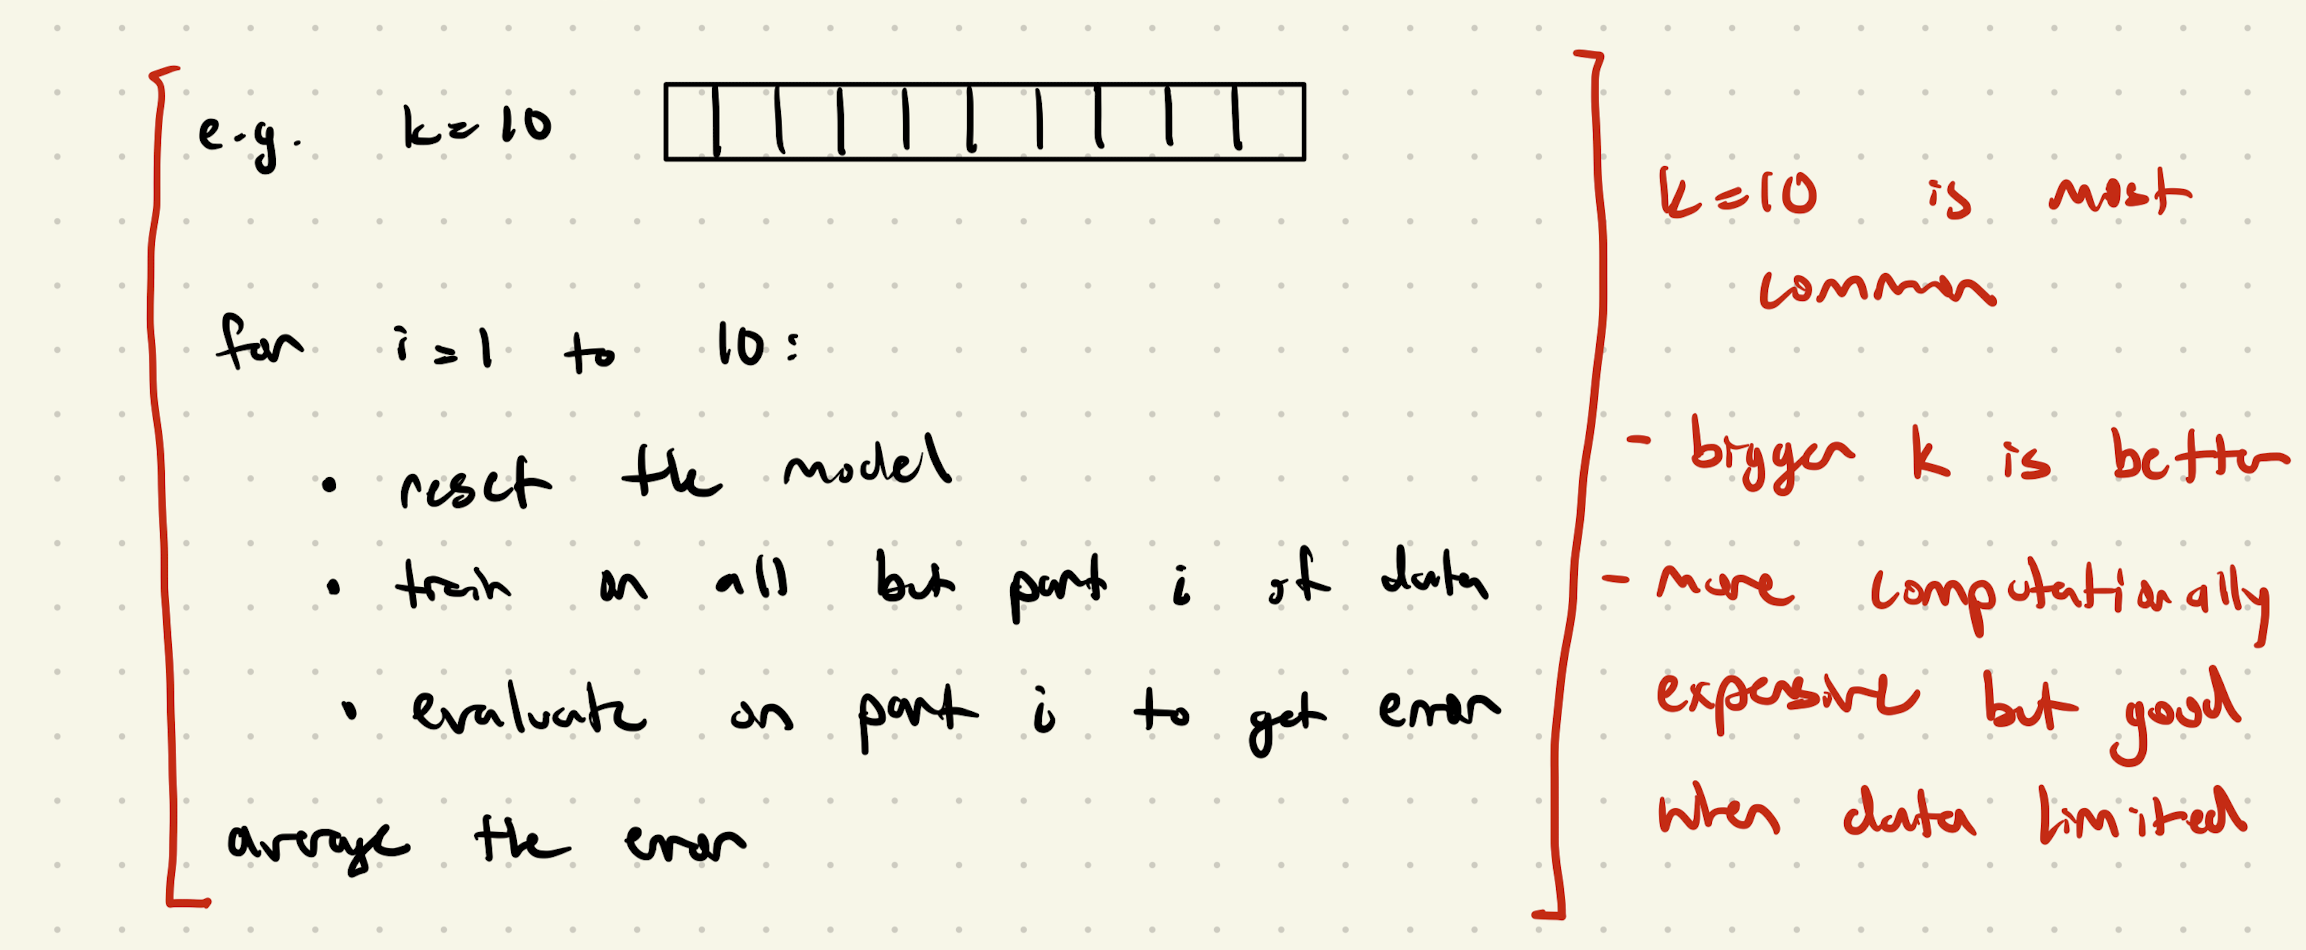 e.g. k=10
for i=1 to 10:
• reset the model
• train on all but part i of data
• evaluate on part i to get error
average the error
k=10 is most
common
- bigger k is better
- more computationally
expensive but good
when data limited